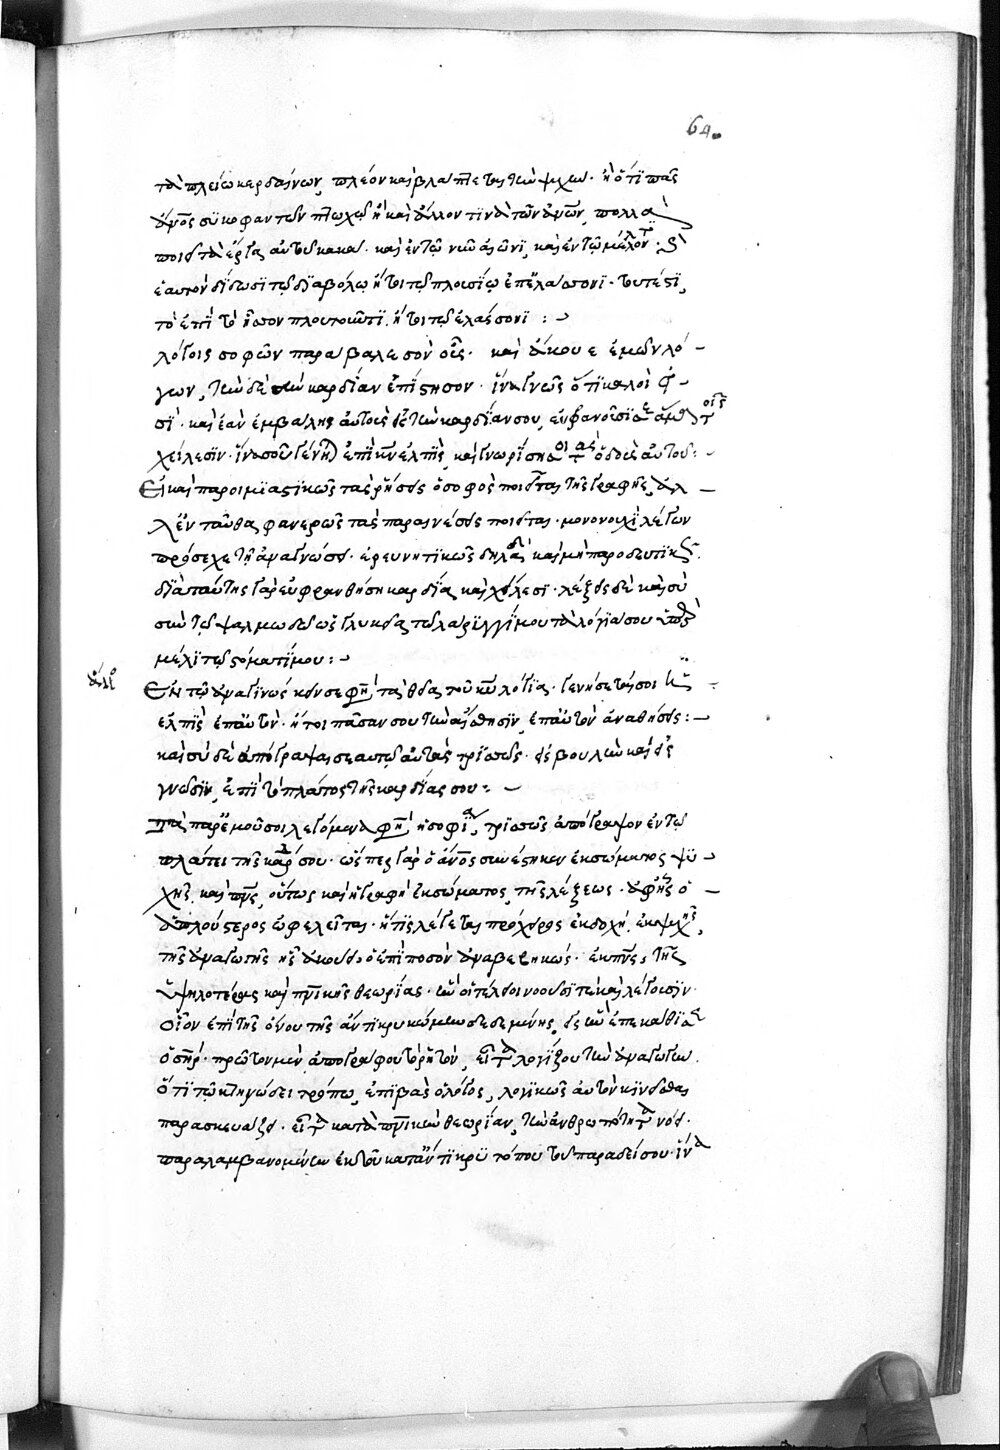 64.
τὰ πλείω κερδαίνων, πλέον καὶ βλάπτεται τὴν ψυχήν. ἢ ὅτι πᾶς
ἄνος συκοφαντῶν πτωχὸν ἢ καὶ ἄλλον τινὰ τῶν ἀνων, πολλὰ
ποιεῖ τὰ ἔργα αὐτοῦ κακά. καὶ ἐν τῷ νῦν αἰῶνι, καὶ ἐν τῷ μέλλοντι.
ἑαυτὸν δίδωσι τῷ διαβόλῳ ἤτοι τῷ πλουσίῳ ἐπ' ἐλάσσονι. τουτέστι,
τὸ ἐπὶ τὸ ἧσσον πλουτοῦντι, ἤτοι τῷ ἐλάσσονι :
λόγοις σοφῶν παράβαλε σὸν οὖς. καὶ ἄκουε ἐμῶν λό-
γων, τὴν δὲ σὴν καρδίαν ἐπίστησον. ἵνα γνῶς ὅτι καλοί εἰ-
σι. καὶ ἐὰν ἐμβάλῃς αὐτοὺς εἰς τὴν καρδίαν σου, εὐφρανοῦσί σε ἅμα τοῖς
χείλεσιν. ἵνα σοῦ γένηται ἐπὶ κν ἐλπὶς, καὶ γνωρίσῃ σοι τὰς ὁδοὺς αὐτοῦ :
Εἰ καὶ παροιμιαστικῶς τὰς ῥήσεις ὁ σοφὸς ποιεῖται τῆς γραφῆς, ἀλ
λ' ἐνταῦθα φανερῶς τὰς παραινέσεις ποιεῖται. μονονουχὶ λέγων
πρόσεχε τῇ ἀναγνώσει. ἐρευνητικῶς δηλαδὴ καὶ μὴ παροδευτικῶς.
διὰ ταύτης γὰρ εὐφρανθήσῃ καρδίᾳ καὶ χείλεσι. λέξεις δὲ καὶ σὺ
σὺν τῷ ψαλμῳδῷ ὡς γλυκέα τῷ λάρυγγί μου τὰ λόγιά σου ὑπὲρ
μέλι τῷ στόματί μου :
ἄλλο
Ἐν τῷ ἀναγινώσκειν σε φη τὰ θεῖα τοῦ κυ λόγια. γενήσεταί σοι ἡ
ἐλπὶς ἐπ' αὐτόν. ἤτοι πᾶσαν σου τὴν αἴσθησιν ἐπ' αὐτὸν ἀναθήσεις :
καὶ σὺ δὲ ἀπόγραψαι σεαυτῷ αὐτὰς τρισσῶς. εἰς βουλὴν καὶ εἰς
γνῶσιν, ἐπὶ τὸ πλάτος τῆς καρδίας σου :
παρ' ἐμοῦ σοι λεγόμενα φη, ἡ σοφία, τρισσῶς ἀπόγραψον ἐν τῷ
πλάτει τῆς καρδ σου. ὥσπερ γὰρ ὁ ἄνος συνέστηκεν ἐκ σώματος ψυ
χῆς, καὶ πνς, οὕτως καὶ ἡ γραφὴ ἐκ σώματος, τῆς λέξεως. ἀφ' ἧς ὁ
ἁπλούστερος ὠφελεῖται. ἥτις λέγεται πρόχειρος ἐκδοχή, ἐκ ψυχῆς,
τῆς ἀναγωγῆς ἧς ἀκούει, ὁ ἐπὶ ποσὸν ἀναβεβηκώς. ἐκ πνς, τῆς
ὑψηλοτέρας καὶ πνικῆς θεωρίας. ὧν οἱ τέλειοι νοοῦσί τε καὶ λέγουσιν.
οἷον ἐπὶ τῆς ὄνου τῆς ἀντικρυ κώμην δεδεμένης, εἰς ἣν ἐπεκάθισεν
ὁ σηρ. πρῶτον μὲν ἀπογράφου τὸ ῥητόν, εἶτα λογίζου τὴν ἀναγωγήν.
ὅτι τῷ κτηνώδει τρόπῳ, ἐπιβὰς ὁ λόγος, λογικῶς αὐτὸν κινεῖσθαι
παρασκευάζει. εἶτα κατὰ πνικὴν θεωρίαν, τὴν ἀνθρωπότητα νόει.
παραλαμβανομένην ἐκ τοῦ κατάντικρυ τόπου τοῦ παραδείσου. ἵνα